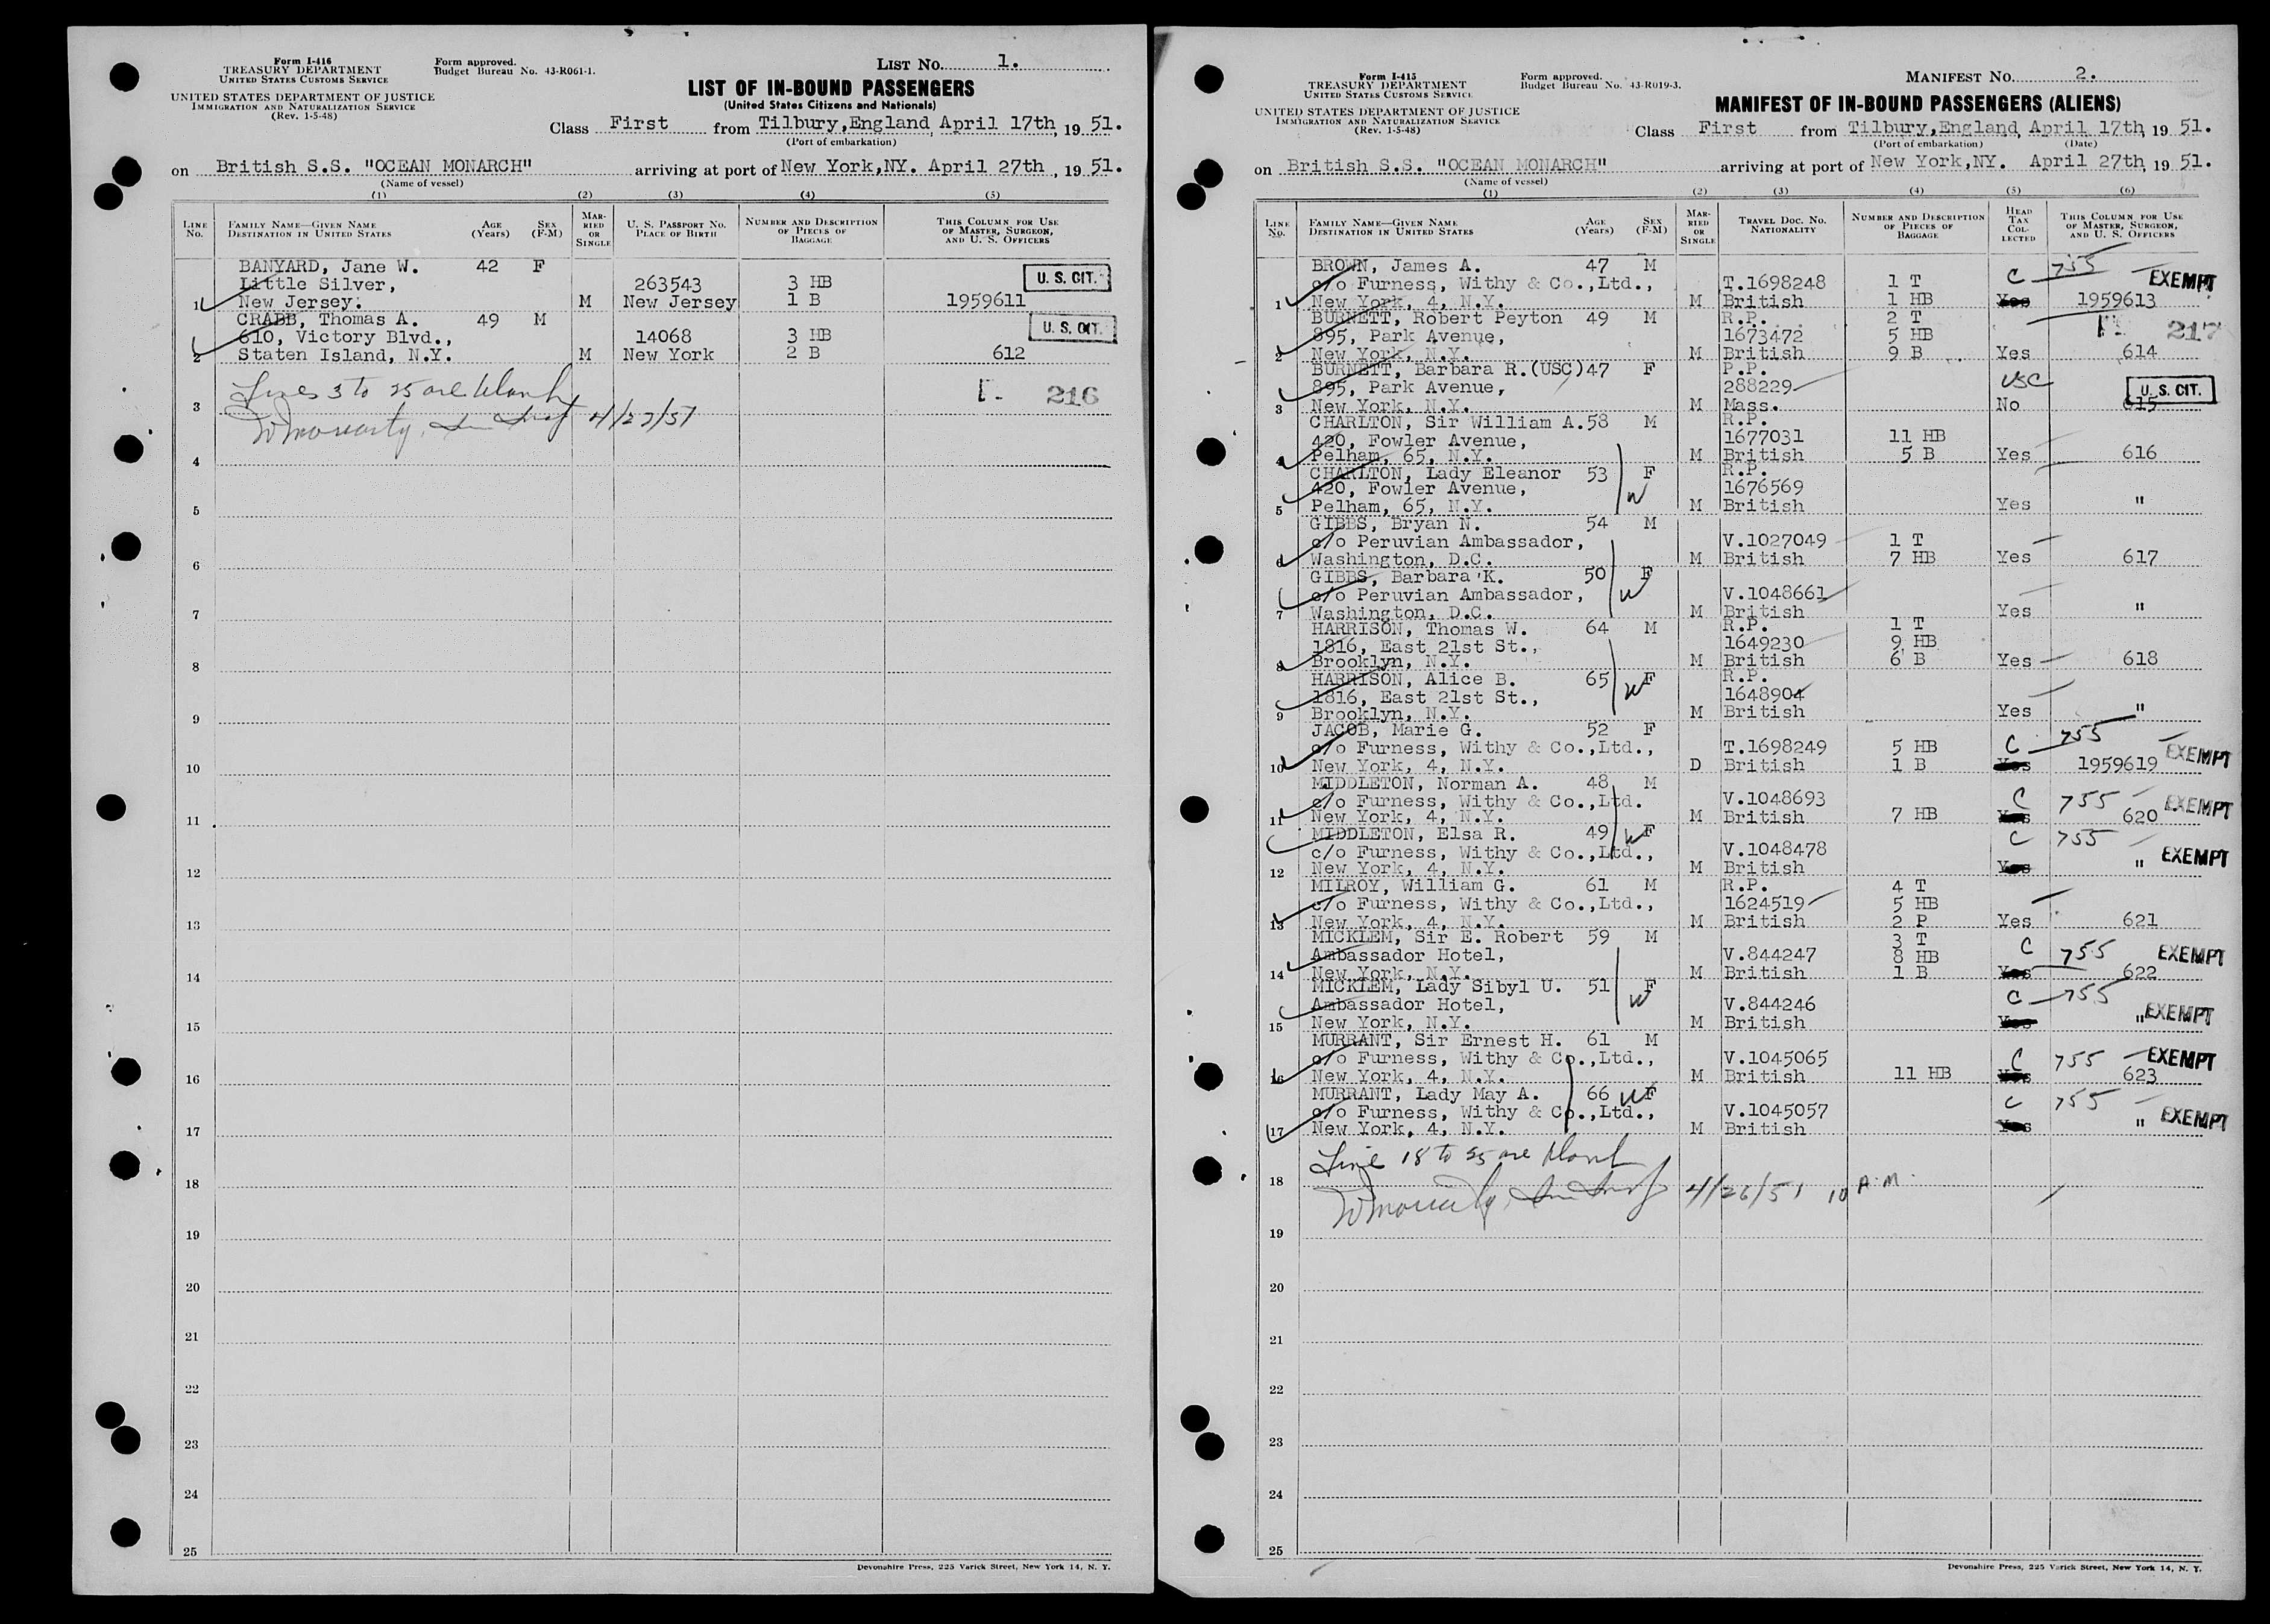 Form I-416
TREASURY DEPARTMENT
UNITED STATES CUSTOMS SERVICE
Form approved.
Budget Bureau No. 43-R061-1.
LIST No. 1.
UNITED STATES DEPARTMENT OF JUSTICE
IMMIGRATION AND NATURALIZATION SERVICE
(Rev. 1-5-48)
LIST OF IN-BOUND PASSENGERS
(United States Citizens and Nationals)
Class First from Tilbury,England, April 17th, 19 51.
(Port of embarkation)
on British S.S. "OCEAN MONARCH" arriving at port of New York,NY. April 27th, 19 51.
(Name of vessel)
(1) (2) (3) (4) (5)
LINE No. FAMILY NAME—GIVEN NAME DESTINATION IN UNITED STATES AGE (Years) SEX (F-M) MARRIED OR SINGLE U. S. PASSPORT No. PLACE OF BIRTH NUMBER AND DESCRIPTION OF PIECES OF BAGGAGE THIS COLUMN FOR USE OF MASTER, SURGEON, AND U. S. OFFICERS
BANYARD, Jane W. 42 F U. S. CIT.
Little Silver, 263543 3 HB
1 New Jersey. M New Jersey 1 B 1959611
CRABB, Thomas A. 49 M U. S. CIT.
610, Victory Blvd., 14068 3 HB
2 Staten Island, N.Y. M New York 2 B 612
Lines 3 to 25 are blank
216
3
W Moriarty, 4/27/51
4
5
6
7
8
9
10
11
12
13
14
15
16
17
18
19
20
21
22
23
24
25
Devonshire Press, 225 Varick Street, New York 14, N. Y.
Form I-415
TREASURY DEPARTMENT
UNITED STATES CUSTOMS SERVICE
Form approved.
Budget Bureau No. 43-R019-3.
MANIFEST No. 2.
UNITED STATES DEPARTMENT OF JUSTICE
IMMIGRATION AND NATURALIZATION SERVICE
(Rev. 1-5-48)
MANIFEST OF IN-BOUND PASSENGERS (ALIENS)
Class First from Tilbury,England, April 17th, 19 51.
(Port of embarkation) (Date)
on British S.S. "OCEAN MONARCH" arriving at port of New York,NY. April 27th, 19 51.
(Name of vessel)
(1) (2) (3) (4) (5) (6)
LINE No. FAMILY NAME—GIVEN NAME DESTINATION IN UNITED STATES AGE (Years) SEX (F-M) MARRIED OR SINGLE TRAVEL DOC. No. NATIONALITY NUMBER AND DESCRIPTION OF PIECES OF BAGGAGE HEAD TAX COLLECTED THIS COLUMN FOR USE OF MASTER, SURGEON, AND U. S. OFFICERS
BROWN, James A. 47 M C 755 EXEMPT
c/o Furness, Withy & Co.,Ltd., T.1698248 1 T
1 New York, 4, N.Y. M British 1 HB Yes 1959613
BURNETT, Robert Peyton 49 M R.P. 2 T 217
895, Park Avenue, 1673472 5 HB
2 New York, N.Y. M British 9 B Yes 614
BURNETT, Barbara R.(USC)47 F P.P. USC
895, Park Avenue, 288229 U. S. CIT.
3 New York, N.Y. M Mass. No 615
CHARLTON, Sir William A.58 M R.P.
420, Fowler Avenue, 1677031 11 HB
4 Pelham, 65, N.Y. M British 5 B Yes 616
CHARLTON, Lady Eleanor 53 F R.P.
420, Fowler Avenue, W 1676569
5 Pelham, 65, N.Y. M British Yes "
GIBBS, Bryan N. 54 M
c/o Peruvian Ambassador, V.1027049 1 T
6 Washington, D.C. M British 7 HB Yes 617
GIBBS, Barbara K. 50 F
c/o Peruvian Ambassador, W V.1048661
7 Washington, D.C. M British Yes "
HARRISON, Thomas W. 64 M R.P. 1 T
1816, East 21st St., 1649230 9 HB
8 Brooklyn, N.Y. M British 6 B Yes 618
HARRISON, Alice B. 65 W F R.P.
1816, East 21st St., 1648904
9 Brooklyn, N.Y. M British Yes "
JACOB, Marie G. 52 F 755
c/o Furness, Withy & Co.,Ltd., T.1698249 5 HB C EXEMPT
10 New York, 4, N.Y. D British 1 B Yes 1959619
MIDDLETON, Norman A. 48 M
c/o Furness, Withy & Co.,Ltd. V.1048693 C 755 EXEMPT
11 New York, 4, N.Y. M British 7 HB Yes 620
MIDDLETON, Elsa R. 49 W F C 755
c/o Furness, Withy & Co.,Ltd., V.1048478 EXEMPT
12 New York, 4, N.Y. M British Yes "
MILROY, William G. 61 M R.P. 4 T
c/o Furness, Withy & Co.,Ltd., 1624519 5 HB
13 New York, 4, N.Y. M British 2 P Yes 621
MICKLEM, Sir E. Robert 59 M 3 T C 755 EXEMPT
Ambassador Hotel, V.844247 8 HB
14 New York, N.Y. M British 1 B Yes 622
MICKLEM, Lady Sibyl U. 51 W F C 755
Ambassador Hotel, V.844246 EXEMPT
15 New York, N.Y. M British Yes "
MURRANT, Sir Ernest H. 61 M
c/o Furness, Withy & Co.,Ltd., V.1045065 C 755 EXEMPT
16 New York, 4, N.Y. M British 11 HB Yes 623
MURRANT, Lady May A. 66 W F C 755
c/o Furness, Withy & Co.,Ltd., V.1045057 EXEMPT
17 New York, 4, N.Y. M British Yes "
Line 18 to 25 are blank
18
W Moriarty, 4/26/51 10 A.M.
19
20
21
22
23
24
25
Devonshire Press, 225 Varick Street, New York 14, N. Y.